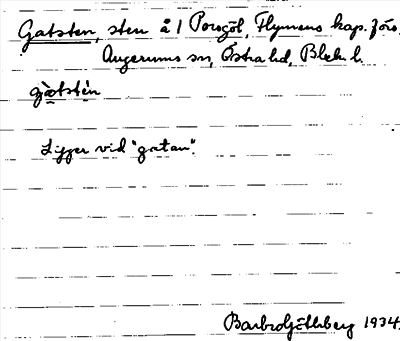 Gatsten, sten å 1 Porsgöl, Flymens kap. förs.
Augerums sn, Östra hd, Blek. l.
gàtstèn
Ligger vid "gatan".
Barbro Götlberg 1934.